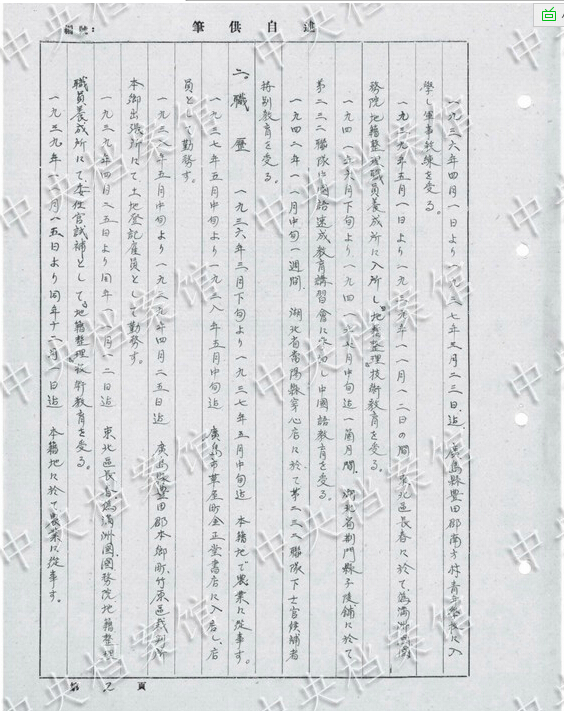 編號：
述自供筆
一九三六年四月一日より一九三七年三月二三日迄、廣島縣豊田郡南方村青年學校に入
學し軍事教練を受る。
一九三九年五月一日より一九三九年一一月一二日の間、東北區長春に於て、偽滿洲國國
務院地籍整理職員養成所に入所し、地籍整理技術教育を受る。
一九四一年六月下旬より、一九四一年七月中旬迄一箇月間、湖北省荊門縣子陵鋪に於て
第二三二聯隊中國語速成教育講習會に し中國語教育を受る。
一九四二年一一月中旬一週間、湖北省當陽縣穿心店に於て第二三二聯隊下士官候補者
特別教育を受る。
二、職歷 一九三六年三月下旬より一九三七年五月中旬迄 本籍地で農業に從事す。
一九三七年五月中旬より一九三八年五月中旬迄 廣島市草屋町金正堂書店に入店し、店
員として勤務す。
一九三八年五月中旬より一九三九年四月二五日迄 廣島縣豊田郡本鄉町、竹原區裁判所
本鄉出張所にて土地登記雇員として勤務す。
一九三九年四月二五日より同年一一月一二日迄 東北區長春、偽滿洲國國務院地籍整理
職員養成所にて、委任官試補として、地籍整理技術教育を受る。
一九三九年一一月一五日より同年十二月一日迄 本籍地に於て農業に從事す。
第 2 頁
中央档案馆